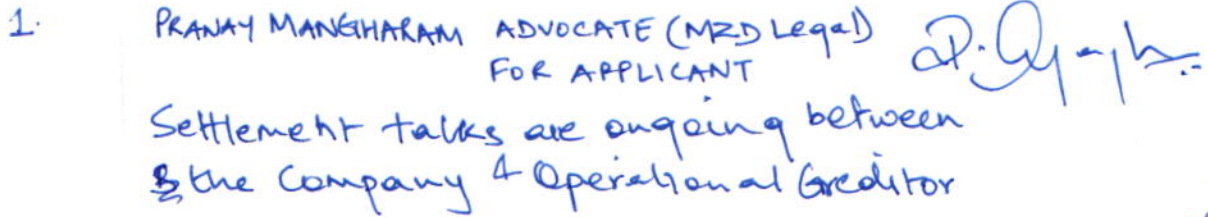 1. PRANAY MANGHARAM ADVOCATE (MZD Legal)
FOR APPLICANT
Settlement talks are ongoing between
the Company & Operational Creditor